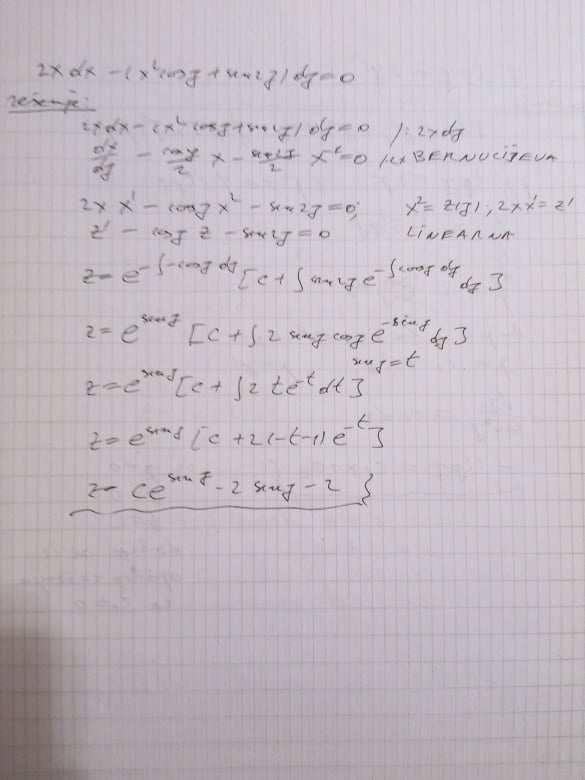 2x dx - (x² cos y + sin 2y) dy = 0
rešenje:
2x dx - (x² cos y + sin 2y) dy = 0 /: 2x dy
dx/dy - cos y/2 x - sin 2y/2 x⁻¹ = 0 /·2x BERNULIJEVA
2x x' - cos y x² - sin 2y = 0; x² = z(y); 2xx' = z'
z' - cos y z - sin 2y = 0 LINEARNA
z = e^(-∫-cos y dy) [c + ∫ sin 2y e^(-∫cos y dy) dy]
z = e^(sin y) [c + ∫ 2 sin y cos y e^(-sin y) dy]
sin y = t
z = e^(sin y) [c + ∫ 2 t e^(-t) dt]
z = e^(sin y) [c + 2(-t-1) e^(-t)]
z = c e^(sin y) - 2 sin y - 2 }